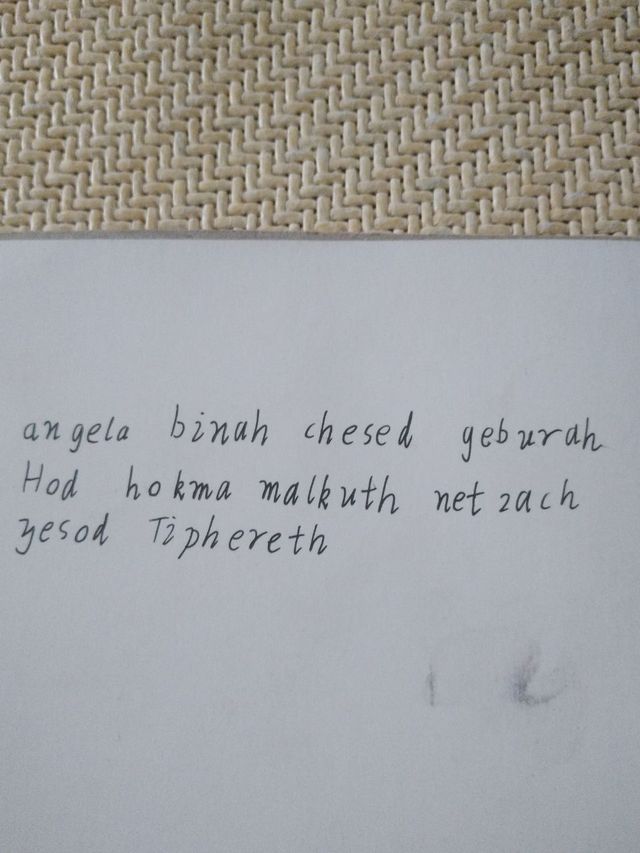 angela binah chesed geburah
Hod hokma malkuth netzach
yesod Tiphereth